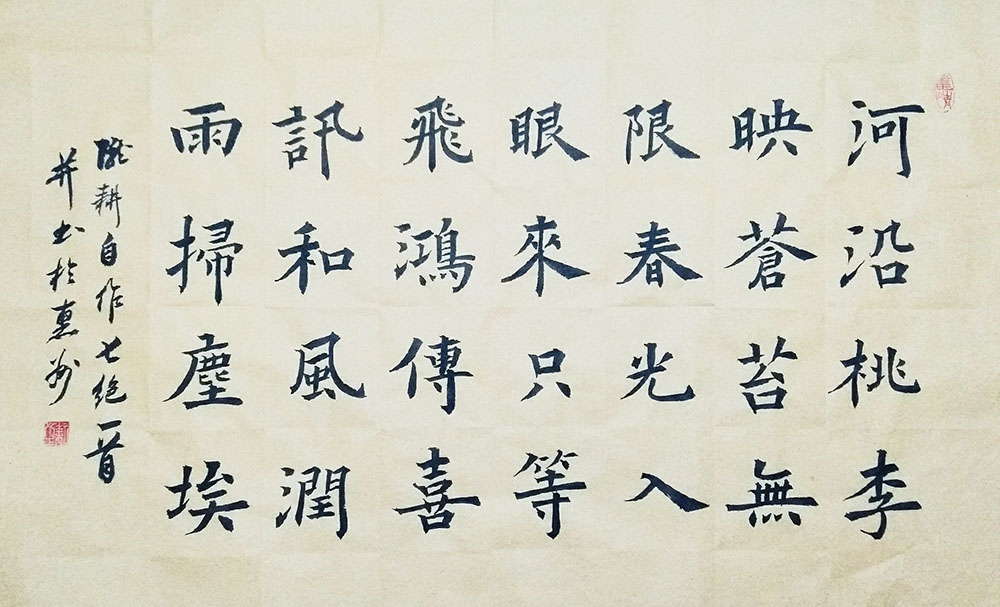 河沿桃李
映蒼苔無
限春光入
眼來只等
飛鴻傳喜
訊和風潤
雨掃塵埃
耕自作七絕一首
并书於惠州